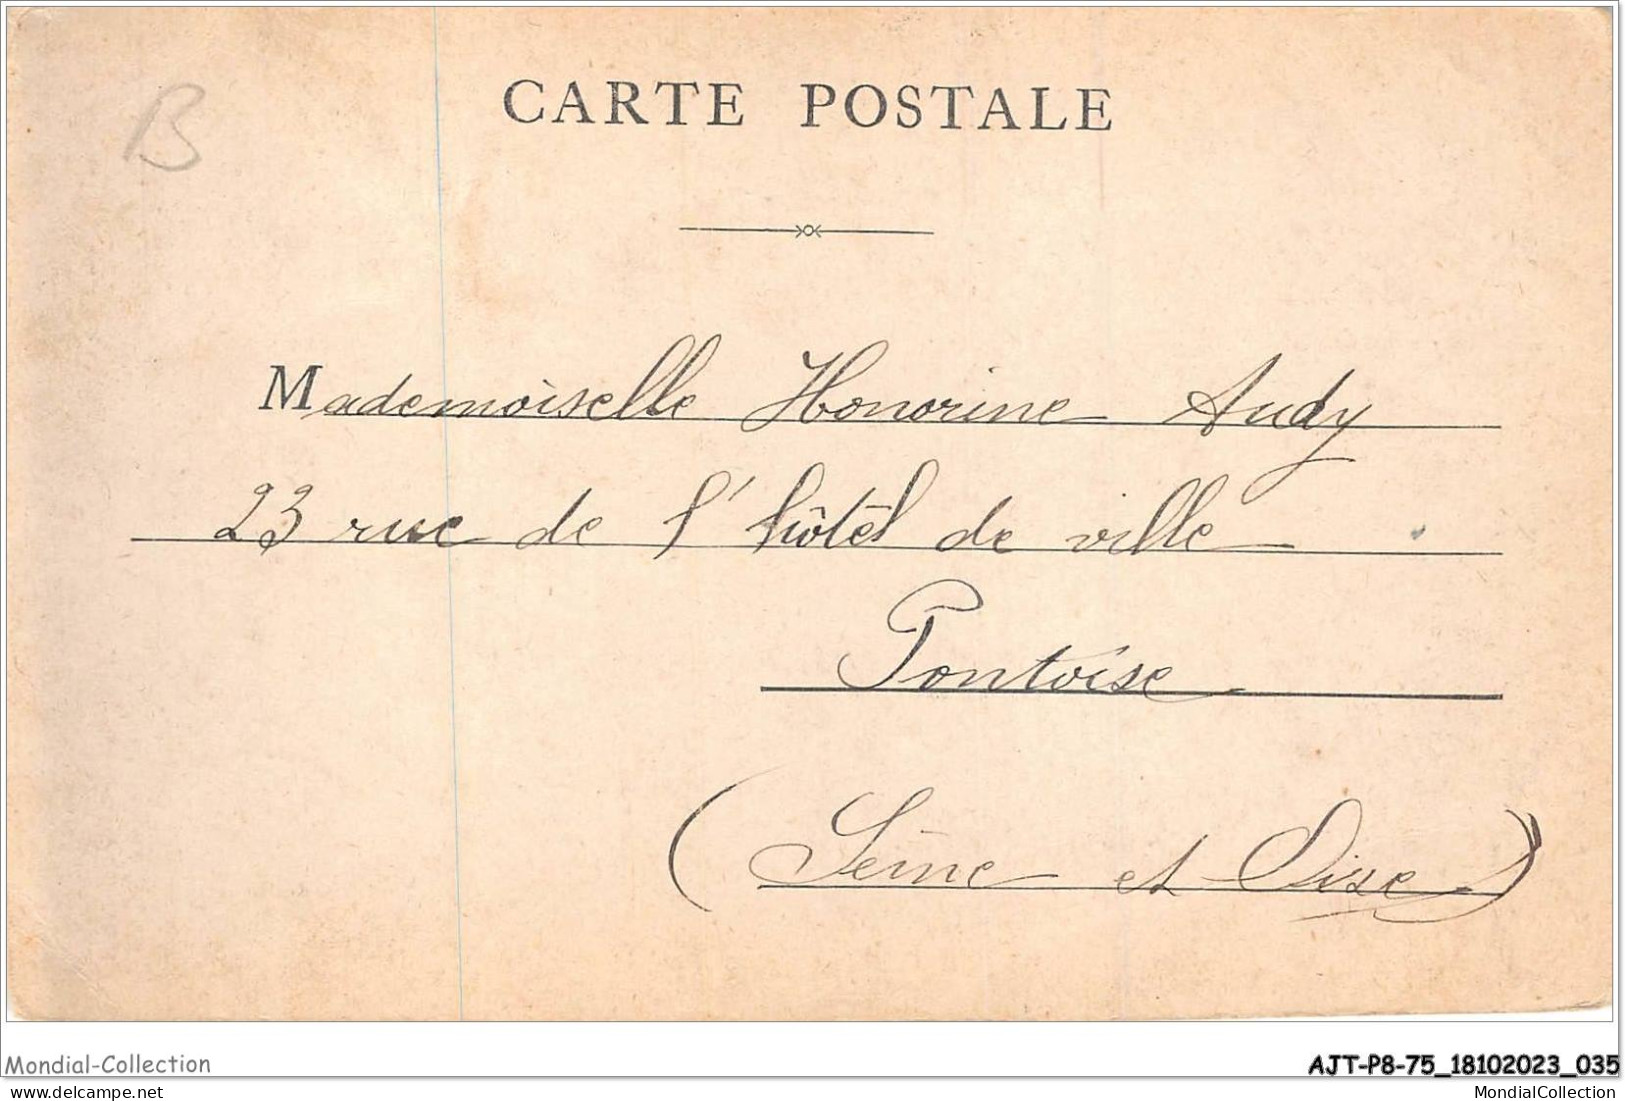 B
CARTE POSTALE
Mademoiselle Honorine Audy
23 rue de l'hôtel de ville
Pontoise
(Seine et Oise)
Mondial-Collection
AJT-P8-75_18102023_035
MondialCollection